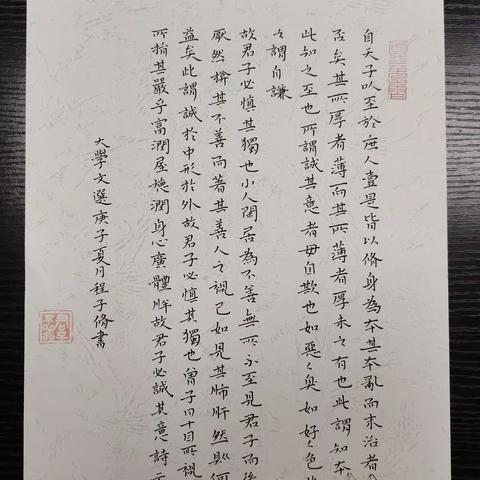 自天子以至於庶人壹是皆以脩身為本其本亂而末治者
否矣其所厚者薄而其所薄者厚未之有也此謂知本
此知之至也所謂誠其意者毋自欺也如惡々臭如好々色
々謂自謙
故君子必慎其獨也小人閒居為不善無所不至見君子而後
厭然揜其不善而著其善人之視己如見其肺肝然則何
益矣此謂誠於中形於外故君子必慎其獨也曾子曰十目所視
所指其嚴乎富潤屋德潤身心廣體胖故君子必誠其意詩
大學文選庚子夏月程子脩書